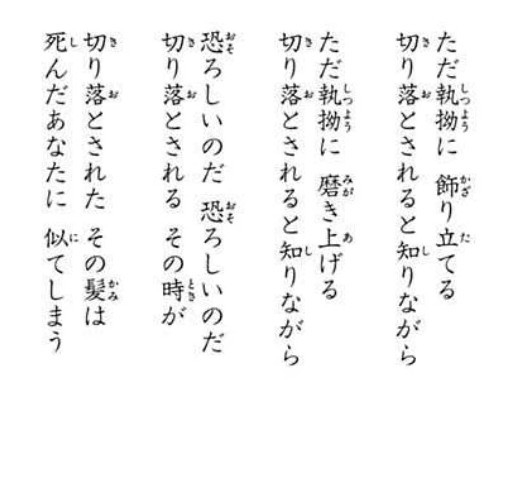 ただ執拗に 飾り立てる
切り落とされると知りながら
ただ執拗に 磨き上げる
切り落とされると知りながら
恐ろしいのだ 恐ろしいのだ
切り落とされる その時が
切り落とされた その髪は
死んだあなたに 似てしまう